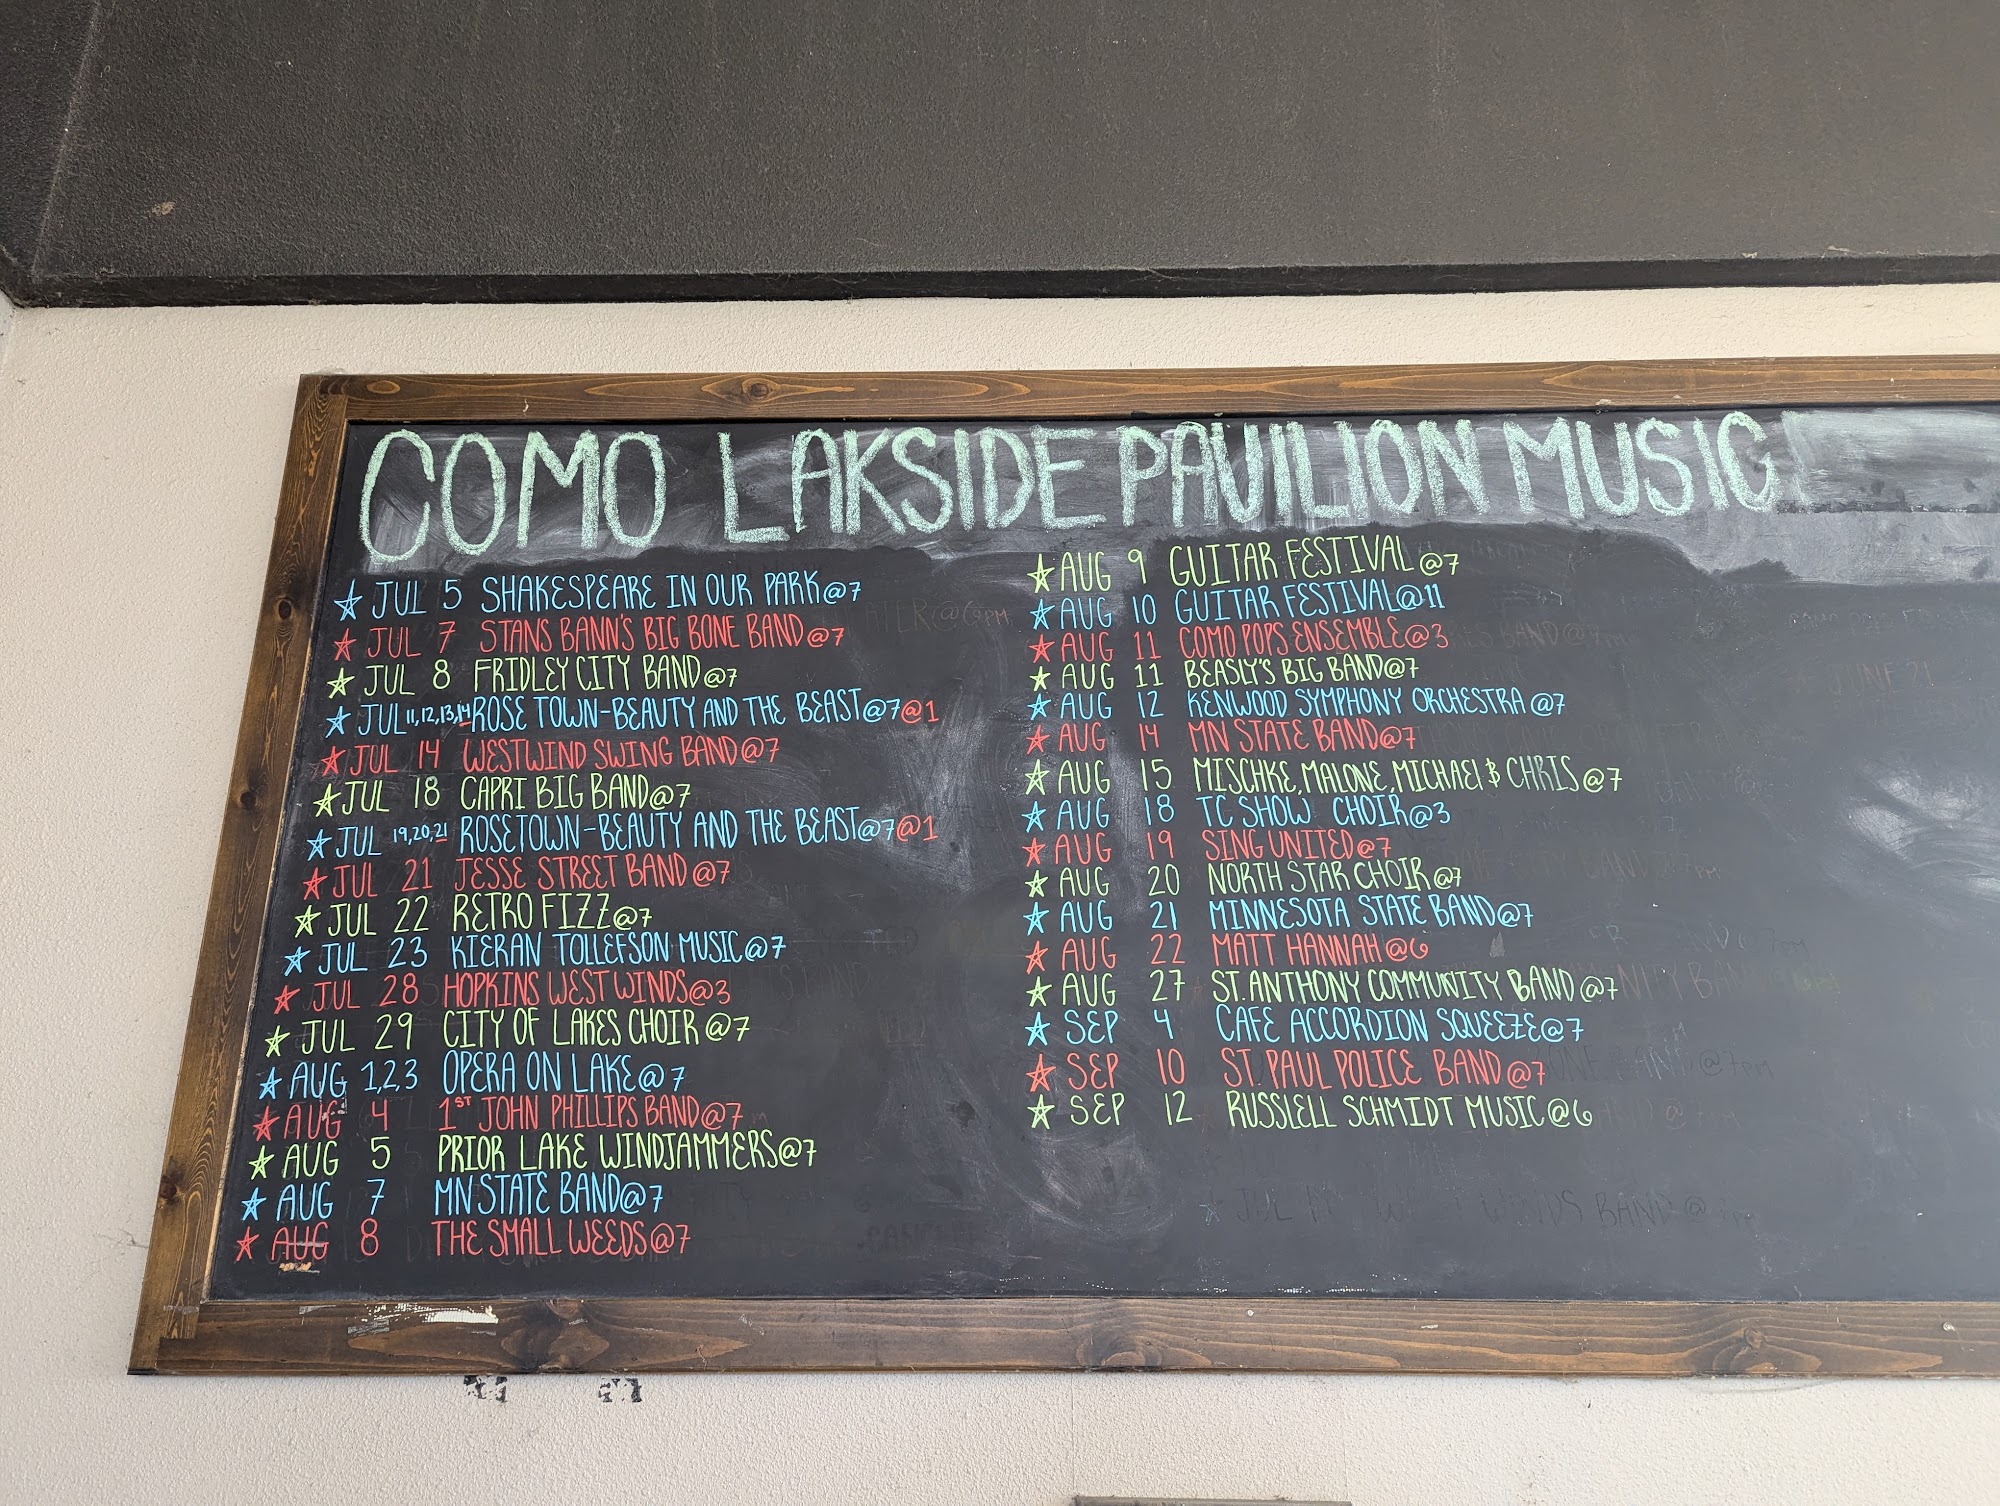 COMO LAKSIDE PAVILION MUSIC
JUL 5 SHAKESPEARE IN OUR PARK@7
JUL 7 STANS BANN'S BIG BONE BAND@7
JUL 8 FRIDLEY CITY BAND@7
JUL 11,12,13,14 ROSE TOWN-BEAUTY AND THE BEAST@7@1
JUL 14 WESTWIND SWING BAND@7
JUL 18 CAPRI BIG BAND@7
JUL 19,20,21 ROSETOWN-BEAUTY AND THE BEAST@7@1
JUL 21 JESSE STREET BAND@7
JUL 22 RETRO FIZZ@7
JUL 23 KIERAN TOLLEFSON MUSIC@7
JUL 28 HOPKINS WEST WINDS@3
JUL 29 CITY OF LAKES CHOIR@7
AUG 1,2,3 OPERA ON LAKE@7
AUG 4 1ST JOHN PHILLIPS BAND@7
AUG 5 PRIOR LAKE WINDJAMMERS@7
AUG 7 MN STATE BAND@7
AUG 8 THE SMALL WEEDS@7
AUG 9 GUITAR FESTIVAL@7
AUG 10 GUITAR FESTIVAL@11
AUG 11 COMO POPS ENSEMBLE@3
AUG 11 BEASLY'S BIG BAND@7
AUG 12 KENWOOD SYMPHONY ORCHESTRA@7
AUG 14 MN STATE BAND@7
AUG 15 MISCHKE, MALONE, MICHAEL & CHRIS@7
AUG 18 TC SHOW CHOIR@3
AUG 19 SING UNITED@7
AUG 20 NORTH STAR CHOIR@7
AUG 21 MINNESOTA STATE BAND@7
AUG 22 MATT HANNAH@6
AUG 27 ST. ANTHONY COMMUNITY BAND@7
SEP 4 CAFE ACCORDION SQUEEZE@7
SEP 10 ST. PAUL POLICE BAND@7
SEP 12 RUSSLELL SCHMIDT MUSIC@6